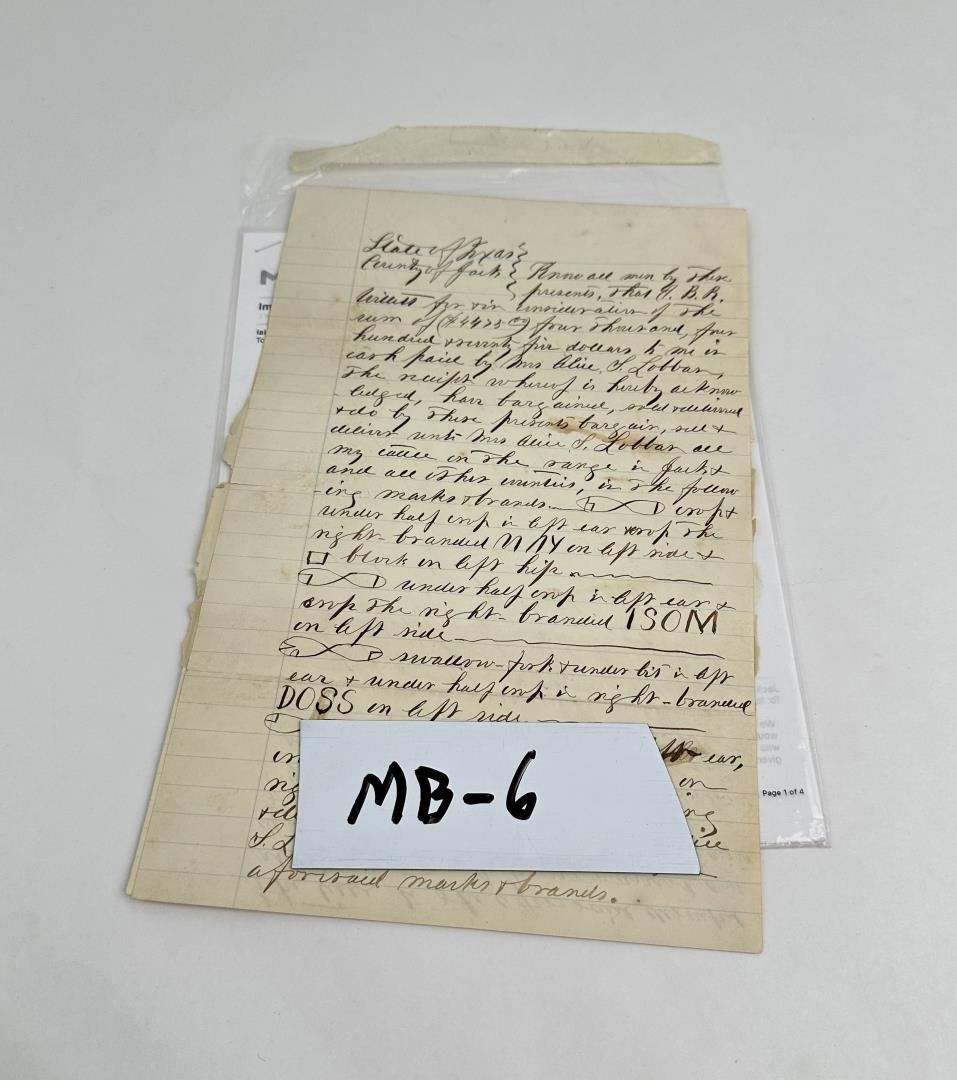 State of Texas
County of Jack } Know all men by these
presents, that I. B. R.
Willett for & in consideration of the
sum of ($4475 00) four thousand, four
hundred & seventy five dollars to me in
cash paid by Mrs Alice S. Lobban,
the receipt whereof is hereby acknow
ledged, have bargained, sold & delivered
& do by these presents bargain, sell &
deliver unto Mrs Alice S. Lobban all
my cattle in the range in Jack &
and all other counties, in the follow
-ing marks & brands. crop &
under half crop in left ear & crop the
right - branded on left side &
block on left hip
under half crop in left ear &
crop the right - branded ISOM
on left side
swallow-fork & under bit in left
ear & under half crop in right - branded
DOSS on left side
ear,
on
aforesaid marks & brands.
MB-6
Page 1 of 4